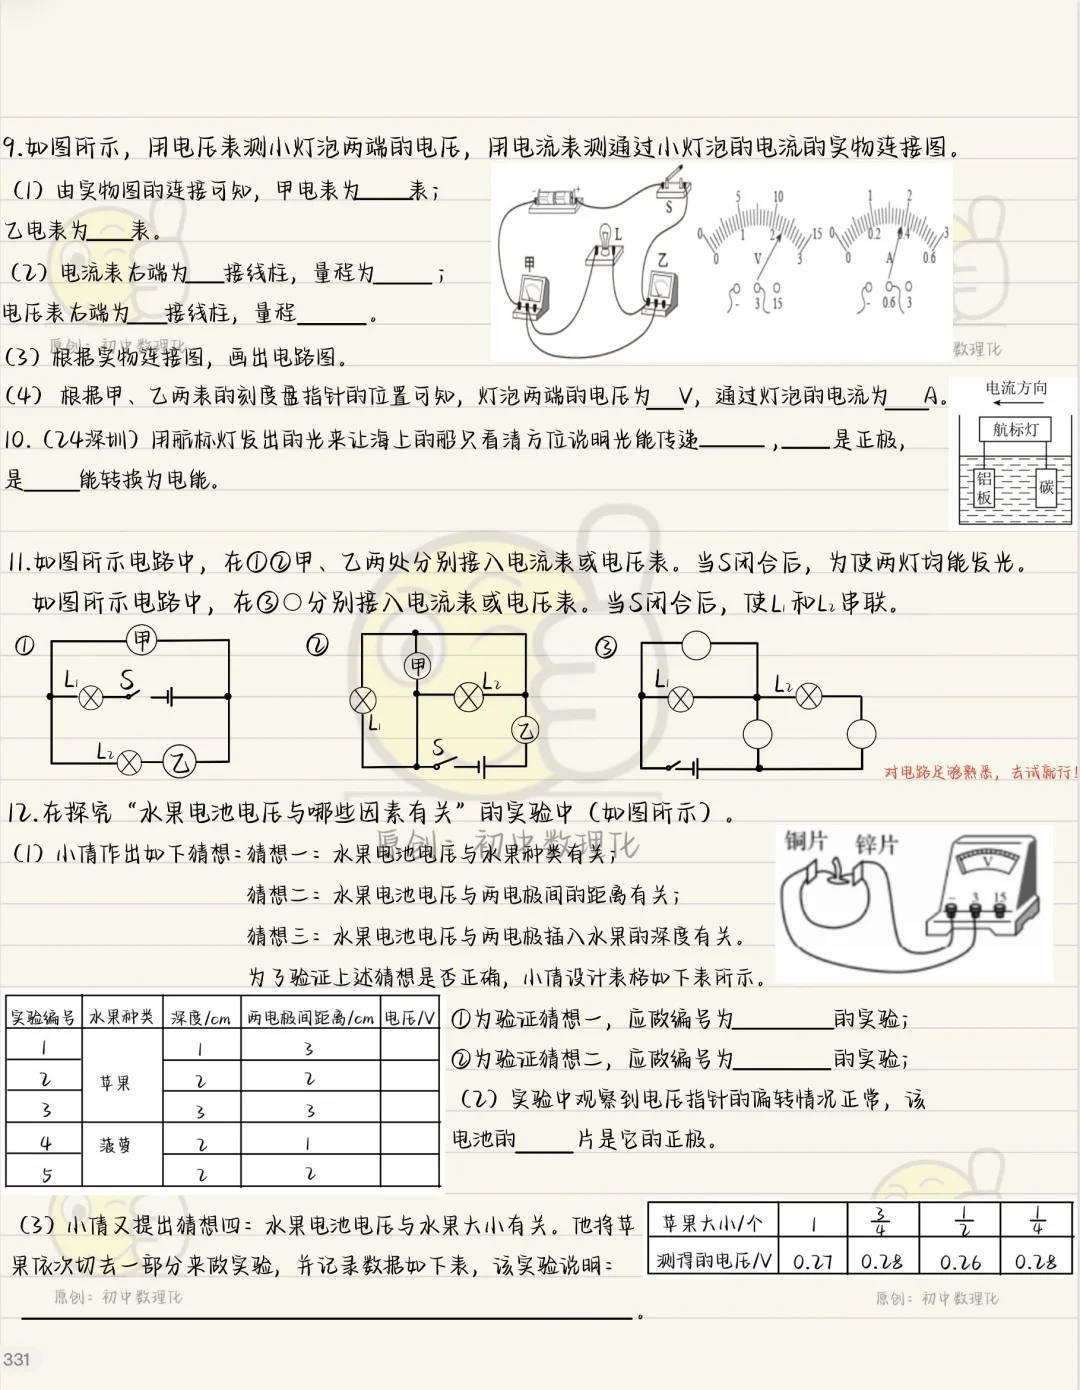 9.如图所示，用电压表测小灯泡两端的电压，用电流表测通过小灯泡的电流的实物连接图。
（1）由实物图的连接可知，甲电表为____表；
乙电表为____表。
（2）电流表右端为___接线柱，量程为_____；
电压表右端为___接线柱，量程______。
（3）根据实物连接图，画出电路图。
（4） 根据甲、乙两表的刻度盘指针的位置可知，灯泡两端的电压为___V，通过灯泡的电流为___A。
S
L
甲
乙
5 10
0 15
1 2
0 3
V
- 3 15
1 2
0 3
0.2 0.4
0 0.6
A
- 0.6 3
10.（24深圳）用航标灯发出的光来让海上的船只看清方位说明光能传递_____，____是正极，
是____能转换为电能。
电流方向
航标灯
铝板
碳
11.如图所示电路中，在①②甲、乙两处分别接入电流表或电压表。当S闭合后，为使两灯均能发光。
如图所示电路中，在③○分别接入电流表或电压表。当S闭合后，使L1和L2串联。
①
甲
L1
S
L2
乙
②
甲
L2
L1
乙
S
③
L1
L2
对电路足够熟悉，去试就行！
12.在探究“水果电池电压与哪些因素有关”的实验中（如图所示）。
（1）小倩作出如下猜想：猜想一：水果电池电压与水果种类有关；
猜想二：水果电池电压与两电极间的距离有关；
猜想三：水果电池电压与两电极插入水果的深度有关。
为了验证上述猜想是否正确，小倩设计表格如下表所示。
铜片 锌片
V
- 3 15
实验编号 水果种类 深度/cm 两电极间距离/cm 电压/V
1 1 3
2 苹果 2 2
3 3 3
4 菠萝 2 1
5 2 2
①为验证猜想一，应做编号为________的实验；
②为验证猜想二，应做编号为________的实验；
（2）实验中观察到电压指针的偏转情况正常，该
电池的_____片是它的正极。
（3）小倩又提出猜想四：水果电池电压与水果大小有关。他将苹
果依次切去一部分来做实验，并记录数据如下表，该实验说明：
______________________________。
苹果大小/个 1 3/4 1/2 1/4
测得的电压/V 0.27 0.28 0.26 0.28
原创：初中数理化
数理化
原创：初中数理化
原创：初中数理化
原创：初中数理化
331